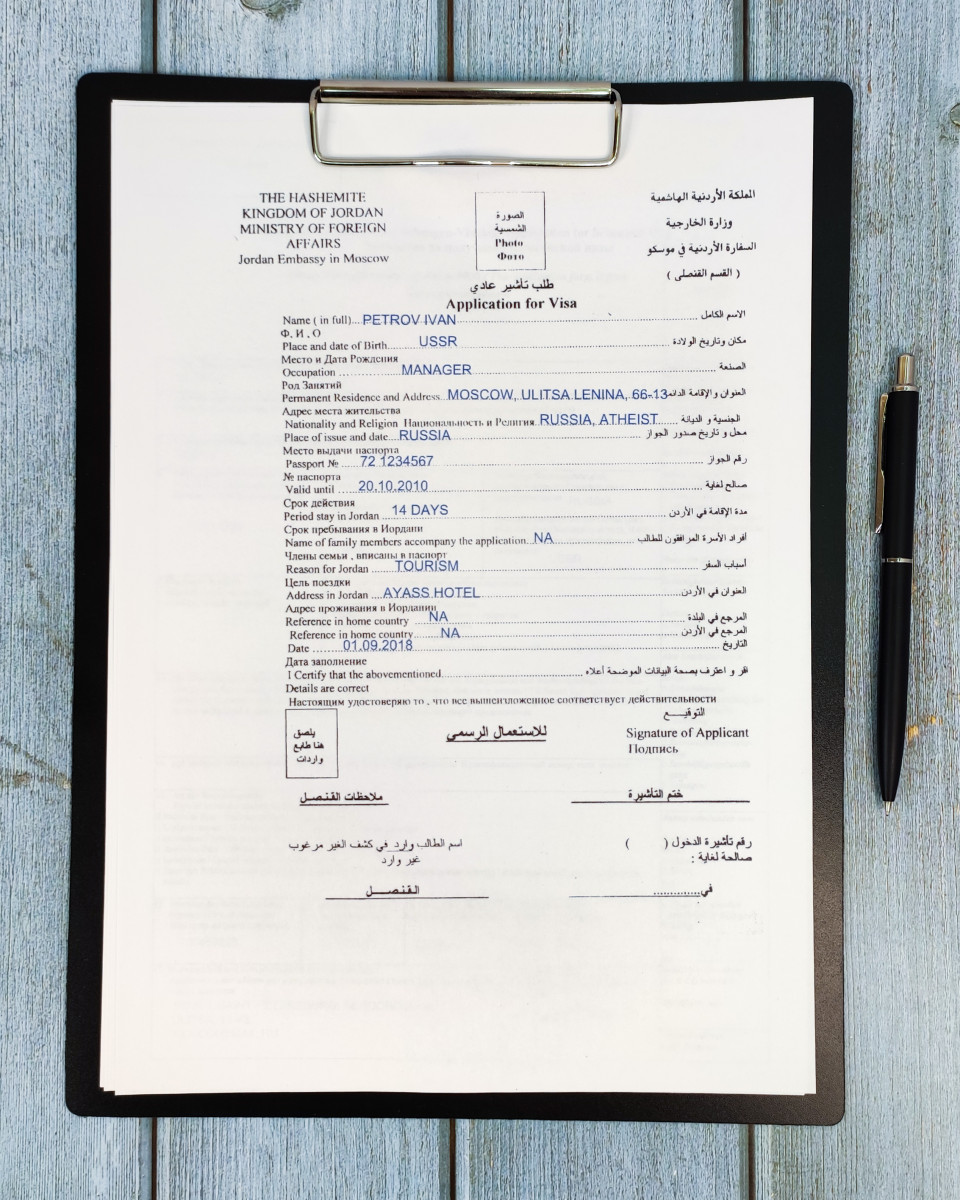 THE HASHEMITE
KINGDOM OF JORDAN
MINISTRY OF FOREIGN
AFFAIRS
Jordan Embassy in Moscow
الصورة
الشمسية
Photo
Фото
المملكة الأردنية الهاشمية
وزارة الخارجية
السفارة الأردنية في موسكو
( القسم القنصلي )
طلب تأشير عادي
Application for Visa
Name ( in full)... PETROV IVAN ... الاسم الكامل
Ф. И , О
Place and date of Birth... USSR ... مكان وتاريخ الولادة
Место и Дата Рождения
Occupation ... MANAGER ... الصنعة
Род Занятий
Permanent Residence and Address... MOSCOW, ULITSA LENINA, 66-13 العنوان والإقامة الدائم
Адрес места жительства
Nationality and Religion Национальность и Религия. RUSSIA, ATHEIST ... الجنسية و الديانة
Place of issue and date... RUSSIA ... محل و تاريخ صدور الجواز
Место выдачи паспорта
Passport № .... 72 1234567 ... رقم الجواز
№ паспорта
Valid until .... 20.10.2010 ... صالح لغاية
Срок действия
Period stay in Jordan ... 14 DAYS ... مدة الإقامة في الأردن
Срок пребывания в Иордани
Name of family members accompany the application... NA ... أفراد الأسرة المرافقون للطالب
Члены семьи , вписаны в паспорт
Reason for Jordan ... TOURISM ... أسباب السفر
Цель поездки
Address in Jordan ... AYASS HOTEL ... العنوان في الأردن
Адрес проживания в Иордании
Reference in home country NA ... المرجع في البلدة
Reference in home country... NA ... المرجع في الأردن
Date ... 01.09.2018 ... التاريخ
Дата заполнение
I Certify that the abovementioned... قر و اعترف بصحة البيانات الموضحة أعلاه
Details are correct
Настоящим удостоверяю то , что все вышеизложенное соответствует действительности
يلصق
هنا طابع
واردات
للاستعمال الرسمي
التوقيـــع
Signature of Applicant
Подпись
ملاحظات القنصـل
ختم التأشيرة
اسم الطالب وارد في كشف الغير مرغوب
غير وارد
رقم تأشيرة الدخول ( )
صالحة لغاية :
القنصــــل
في..............